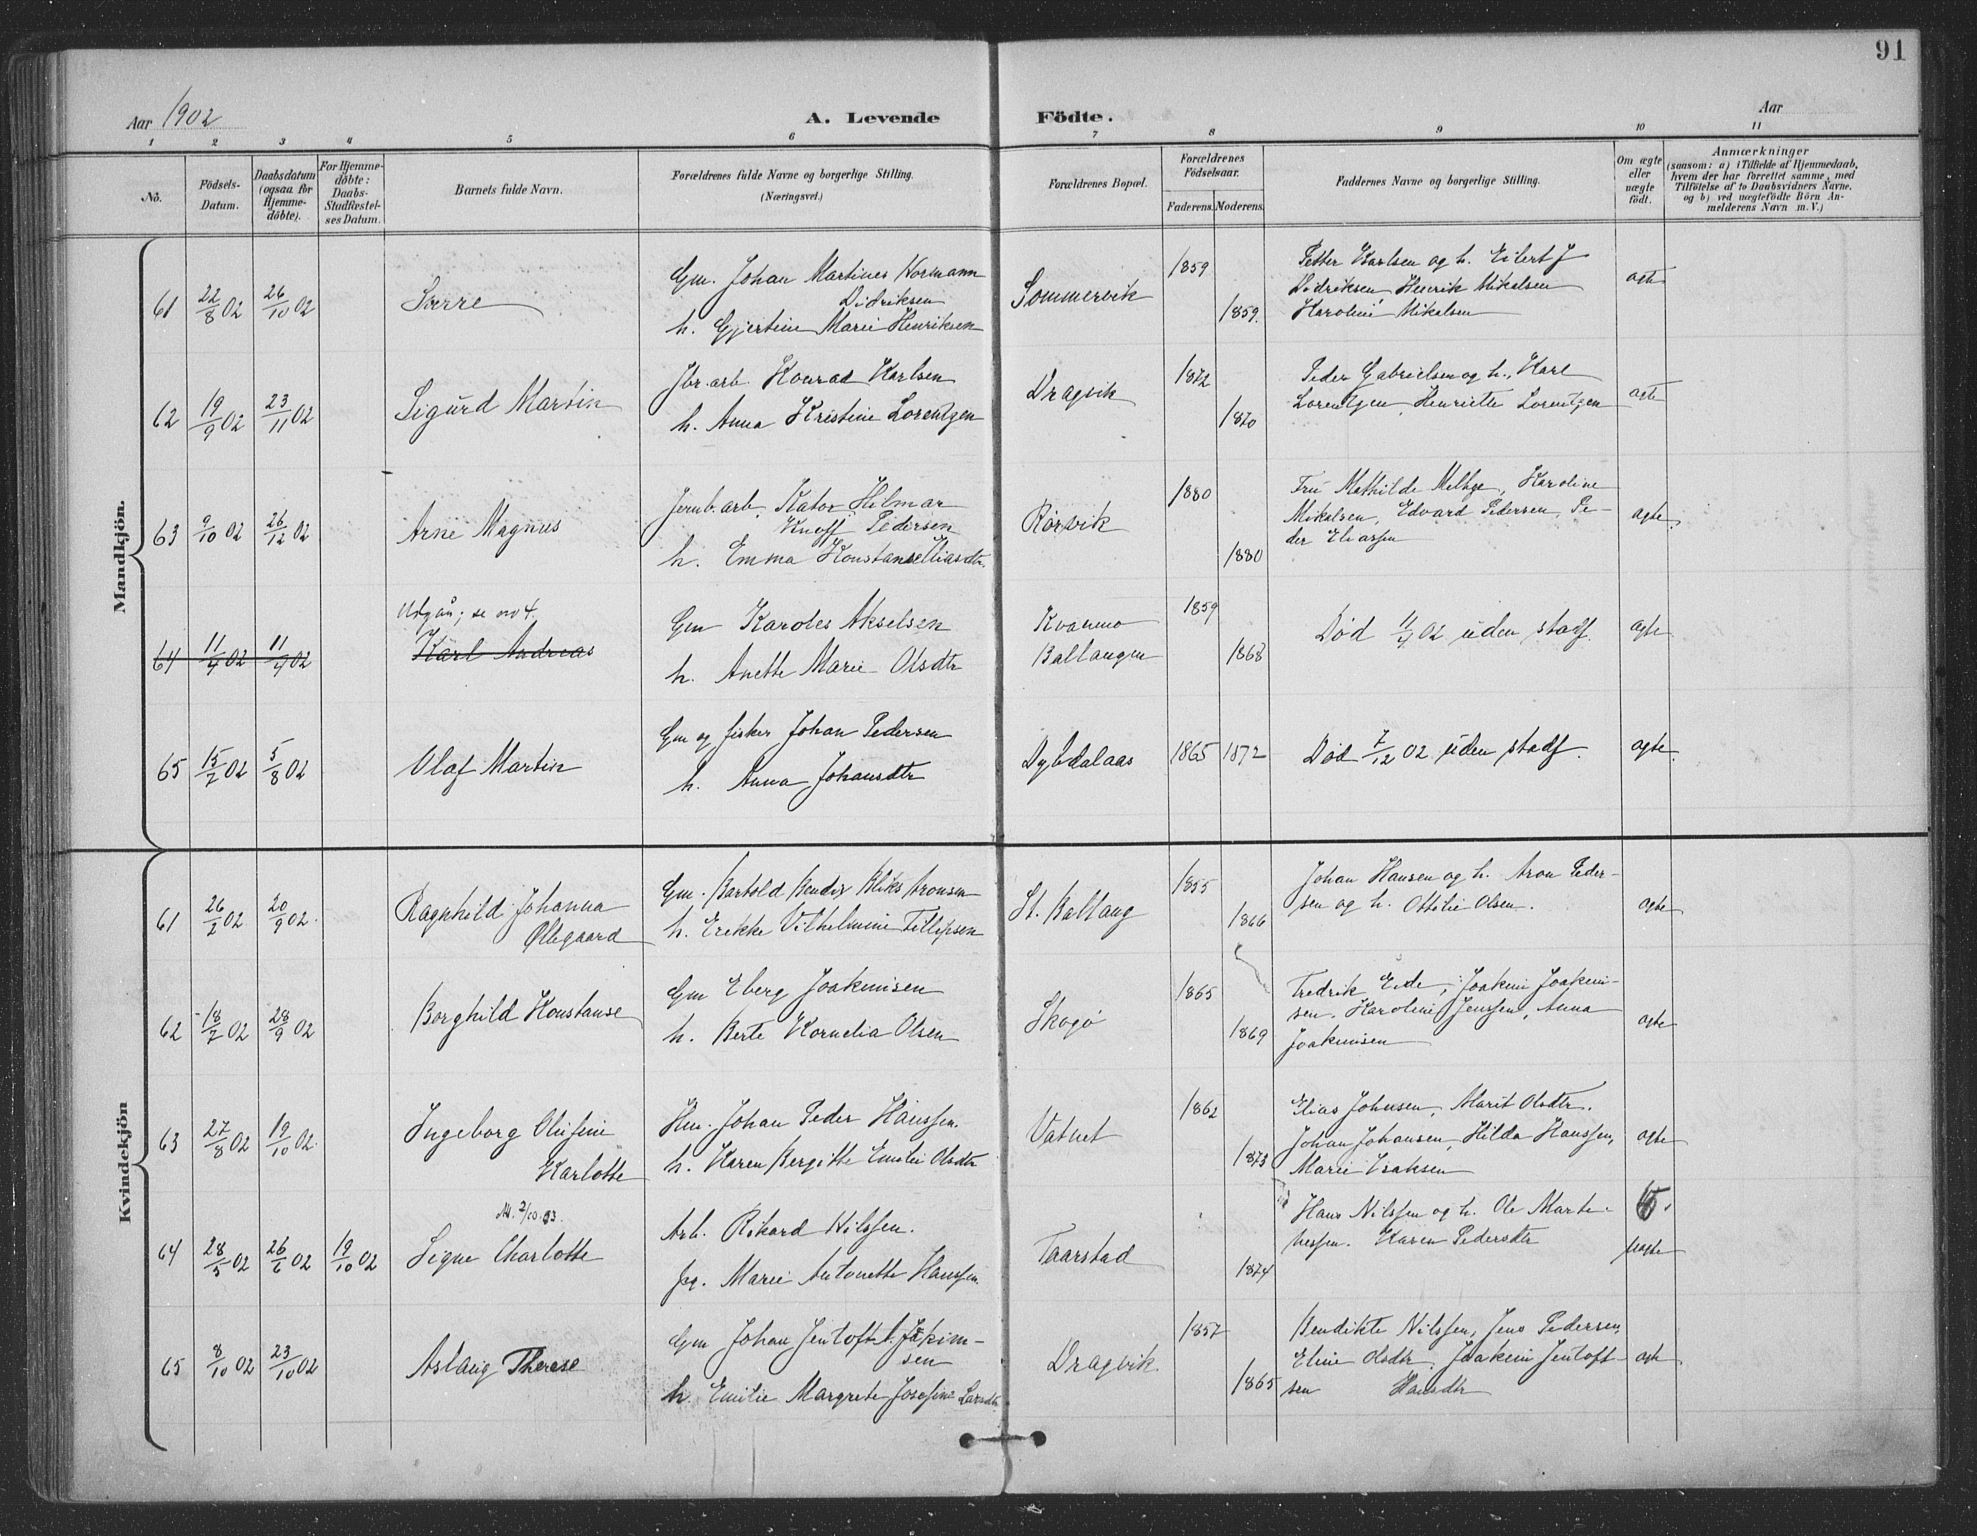 91
Aar 1902
A. Levende Födte.
Aar
1 2 3 4 5 6 7 8 9 10 11
No.
Födsels-Datum.
Daabsdatum (ogsaa for Hjemme-döbte).
For Hjemme-döbte: Daabs-Stadfæstel-ses Datum.
Barnets fulde Navn.
Forældrenes fulde Navne og borgerlige Stilling. (Næringsvei.)
Forældrenes Bopæl.
Forældrenes Födselsaar.
Faderens. Moderens.
Faddernes Navne og borgerlige Stilling.
Om ægte eller uægte födt.
Anmærkninger
(saasom: a) i Tilfælde af Hjemmedaab, hvem der har forrettet samme, med Tilföielse af to Daabsvidners Navne, og b) ved uægtefödte Börn An-melderens Navn m. V.)
Mandkjön.
61 22/8 02 26/10 02 Sverre
Gm. Johan Martines Normann
Didriksen
h. Gjertine Marie Henriksen
Sommervik 1859 1859.
Petter Karlsen og h. Eilert J
Didriksen Henrik Mikalsen
Karoline Mikalsen
ægte
62 19/9 02 23/11 02 Sigurd Martin
Jbr. arb. Konrad Karlsen
h. Anna Kristine Lorentzen
Dragvik 1872 1870
Peder Gabrielsen og h., Karl
Lorentzen, Henriette Lorentzen
ægte
63 9/10 02 26/12 02 Arne Magnus
Jernb. arb. Kator Hilmar
Knoff Pedersen
h. Emma Konstanse Eliasdtr.
Rørvik 1880 1880
Fru Mathilde , Karoline
Mikalsen, Edvard Pedersen, Pe-
der Eliassen
ægte
Udgår; se nro 4.
64 11/4 02 11/4 02 Karl Andreas
Gm Karoles Akselsen
h. Anette Marie Olsdtr
Kvanmo
Ballangen
1859 1868
Død 11/4 02 uden stadf.
ægte
65 15/7 02 5/8 02 Olaf Martin
Gm og fisker Johan Pedersen
h. Anna Johansdtr
Dybdalaas 1865 1872
Død 7/12 02 uden stadf.
ægte.
Kvindekjön
61 26/2 02 20/9 02. Ragnhild Johanna
Øllegaard
Gm. Bartold Bendix Bliks Aronsen
h. Erikke Vilhelmine Tellefsen
St. Ballang 1855 1866
Johan Hansen og h. Aron Peder-
sen og h. Ottilie Olsen.
ægte
62 18/7 02 28/9 02 Borghild Konstanse
Gm Eberg Joakimsen
h. Berte Kornelia Olsen
Skogö 1865 1869
Fredrik Eide, Joakim Joakim-
sen. Karoline Jenssen, Anna
Joakimsen
ægte
63 27/8 02 19/10 02. Ingeborg Olufine
Karlotte
Hm. Johan Peder Hanssen.
h. Karen Bergitte Emilie Olsdtr
Vatnet 1862 1873
Elias Johnsen, Marit Olsdtr.
Johan Johansen, Hilda Hanssen,
Marie Isaksen
ægte
64 28/5 02 26/6 02 19/10 02 Signe Charlotte
Arb. Rikard Nilssen.
pg. Marie Antonette Hanssen.
Taarstad 1874
Hans Nilssen og h. Ole Marte-
nessen. Karen Pedersdtr
uægte
65 8/10 02 23/10 02 Aslaug Therese
Gm Johan Jentoft Joakim-
sen
h. Emilie Margrete Josefine Larsdtr.
Dragvik 1857 1865
Bendikte Nilssen, Jens Pedersen,
Eline Olsdtr. Joakim Jentoft-
sen Hansdtr
ægte